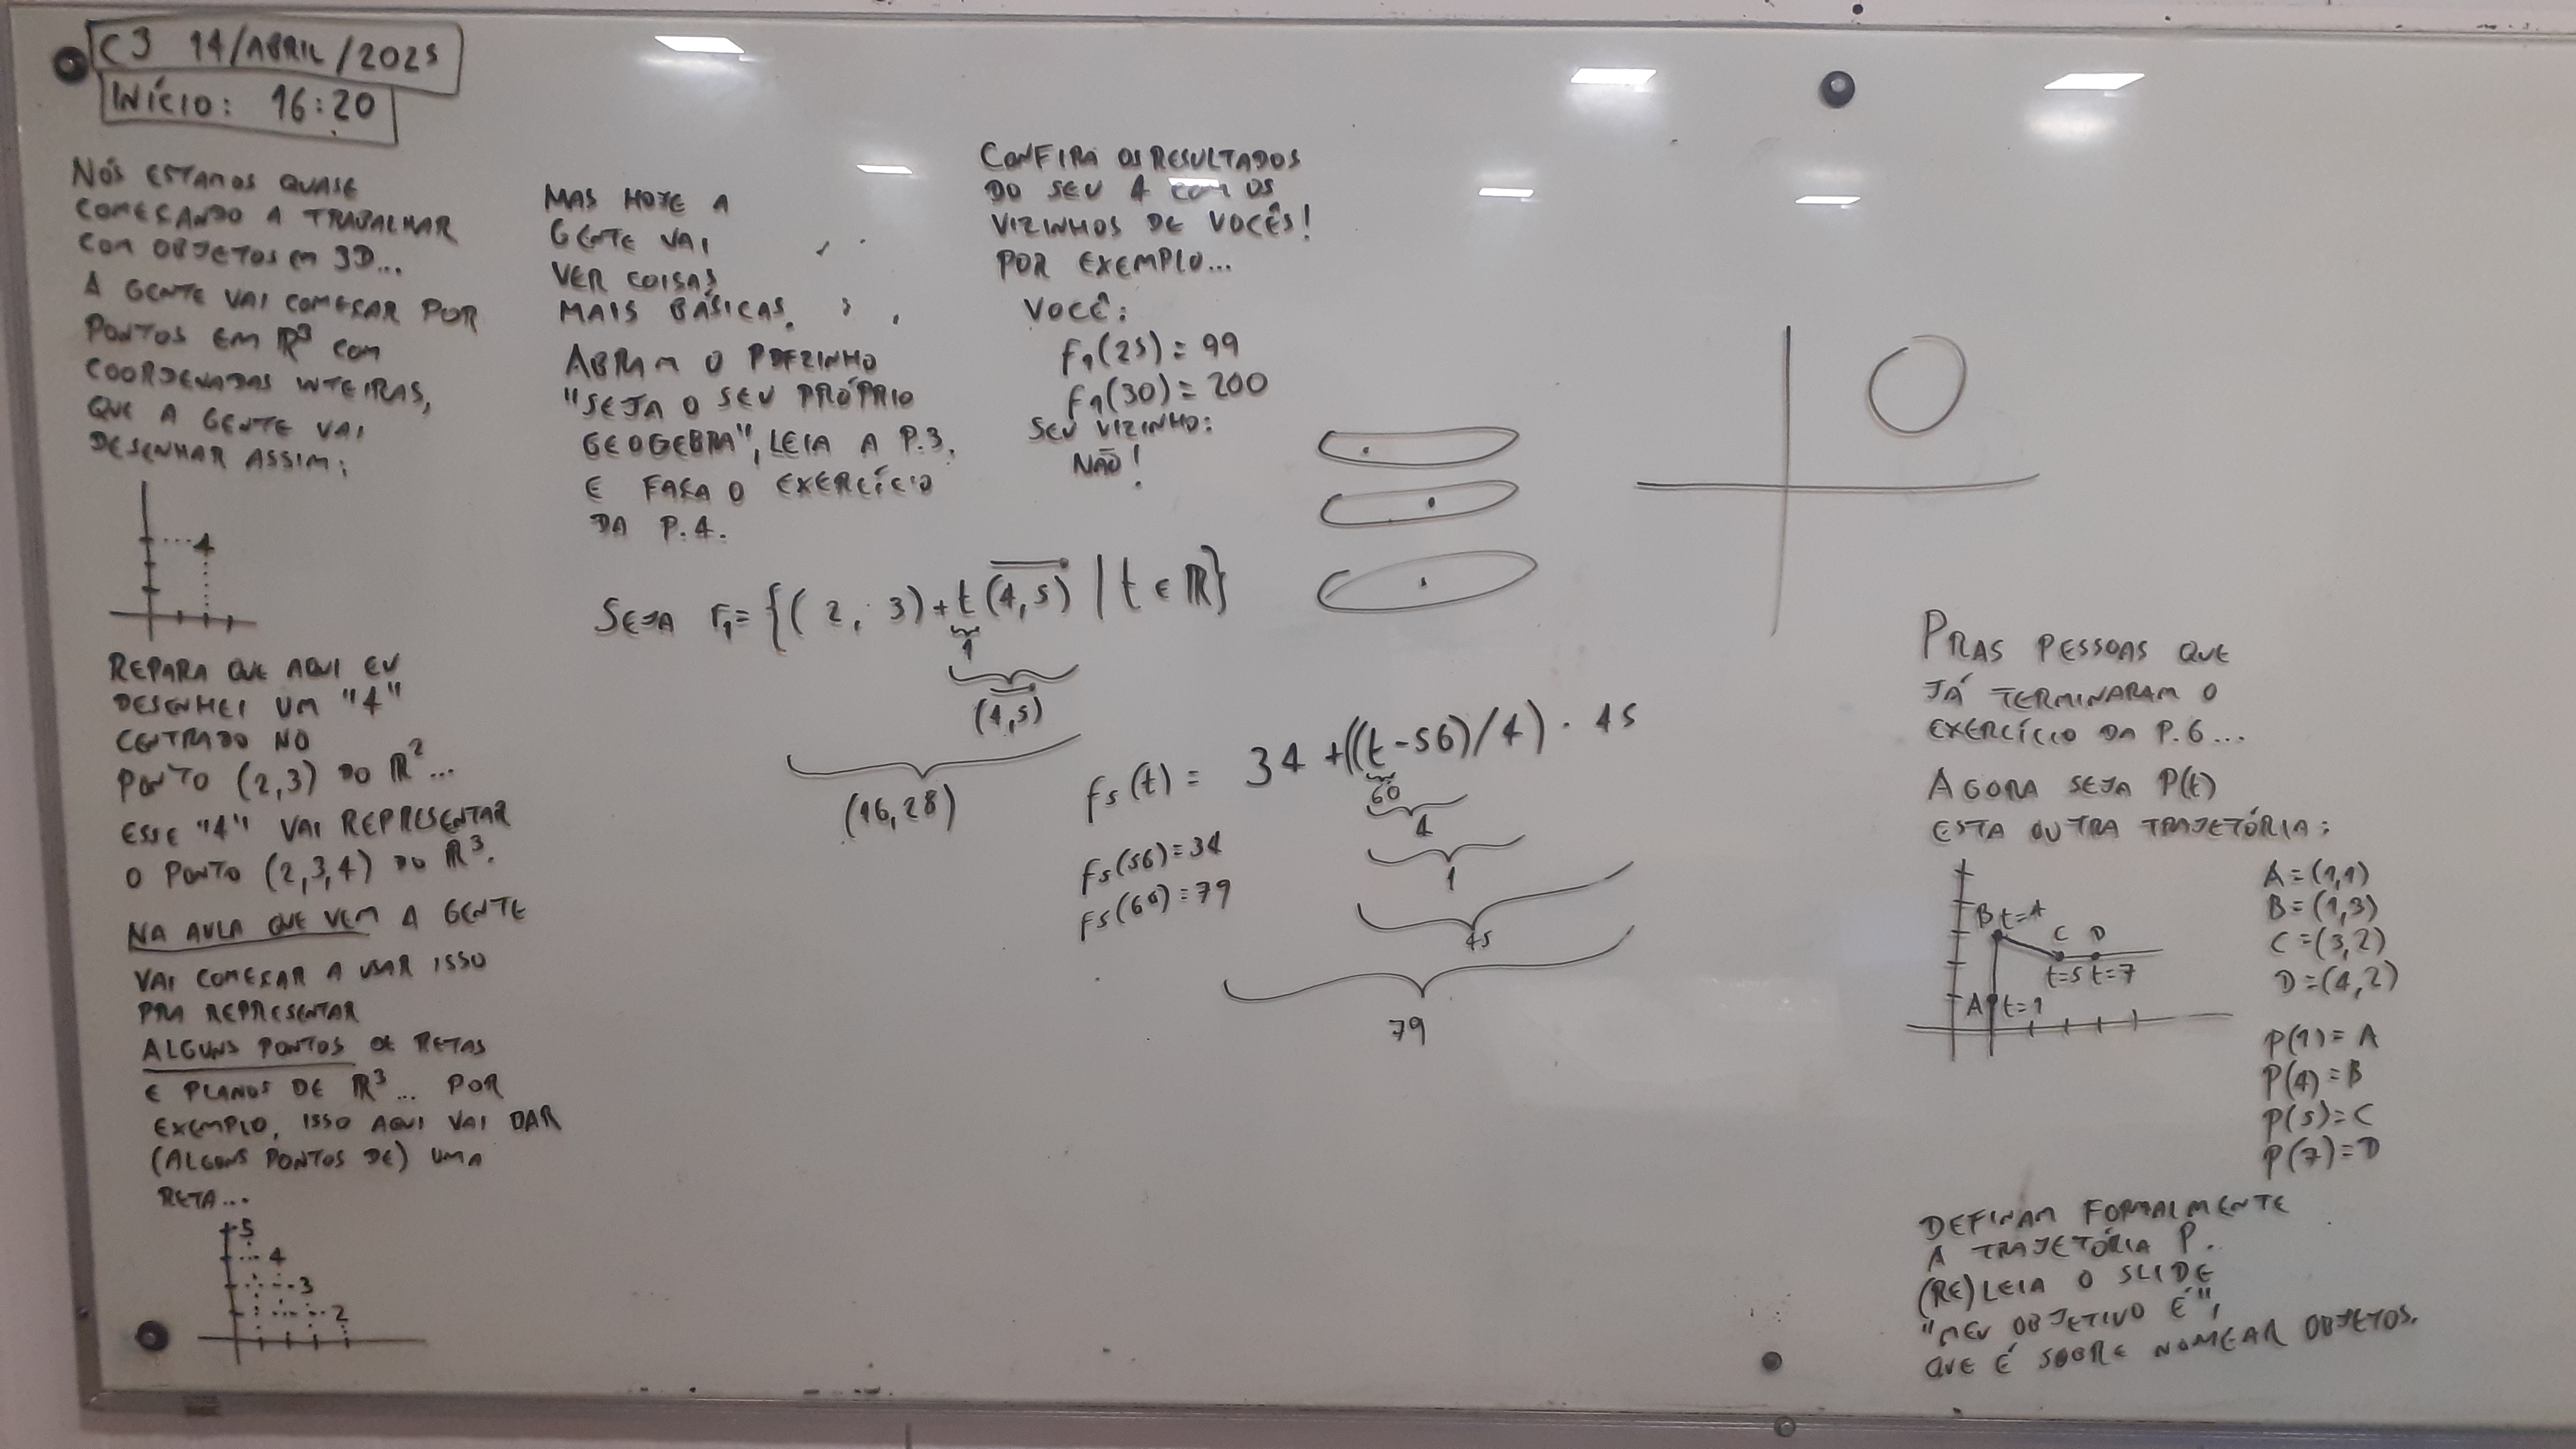 C3 14/ABRIL/2025
INÍCIO: 16:20
NÓS ESTAMOS QUASE
COMEÇANDO A TRABALHAR
COM OBJETOS EM 3D...
A GENTE VAI COMEÇAR POR
PONTOS EM ℝ³ COM
COORDENADAS INTEIRAS,
QUE A GENTE VAI
DESENHAR ASSIM:
4
REPARA QUE AQUI EU
DESENHEI UM "4"
CENTRADO NO
PONTO (2,3) DO ℝ²...
ESSE "4" VAI REPRESENTAR
O PONTO (2,3,4) DO ℝ³.
NA AULA QUE VEM A GENTE
VAI COMEÇAR A USAR ISSO
PRA REPRESENTAR
ALGUNS PONTOS DE RETAS
E PLANOS DE ℝ³... POR
EXEMPLO, ISSO AQUI VAI DAR
(ALGUNS PONTOS DE) UMA
RETA...
5
4
3
2
MAS HOJE A
GENTE VAI
VER COISAS
MAIS BÁSICAS.
ABRAM O PDFZINHO
"SEJA O SEU PRÓPRIO
GEOGEBRA", LEIA A P.3,
E FAÇA O EXERCÍCIO
DA P.4.
CONFIRA OS RESULTADOS
DO SEU 4 COM OS
VIZINHOS DE VOCÊS!
POR EXEMPLO...
VOCÊ:
f₁(25) = 99
f₁(30) = 200
SEU VIZINHO:
NÃO!
SEJA r₁= {(2, 3) + t(4,5) | t ∈ ℝ}
1
(4,5)
(16,28)
f₅(t) = 34 + ((t-56)/4) · 45
60
4
1
45
79
f₅(56)=34
f₅(60)=79
PRAS PESSOAS QUE
JÁ TERMINARAM O
EXERCÍCIO DA P.6...
AGORA SEJA P(t)
ESTA OUTRA TRAJETÓRIA:
B t=4
C D
t=5 t=7
A t=1
A=(1,1)
B=(1,3)
C=(3,2)
D=(4,2)
P(1)= A
P(4)=B
P(5)=C
P(7)=D
DEFINAM FORMALMENTE
A TRAJETÓRIA P.
(RE)LEIA O SLIDE
"MEU OBJETIVO É",
QUE É SOBRE NOMEAR OBJETOS.